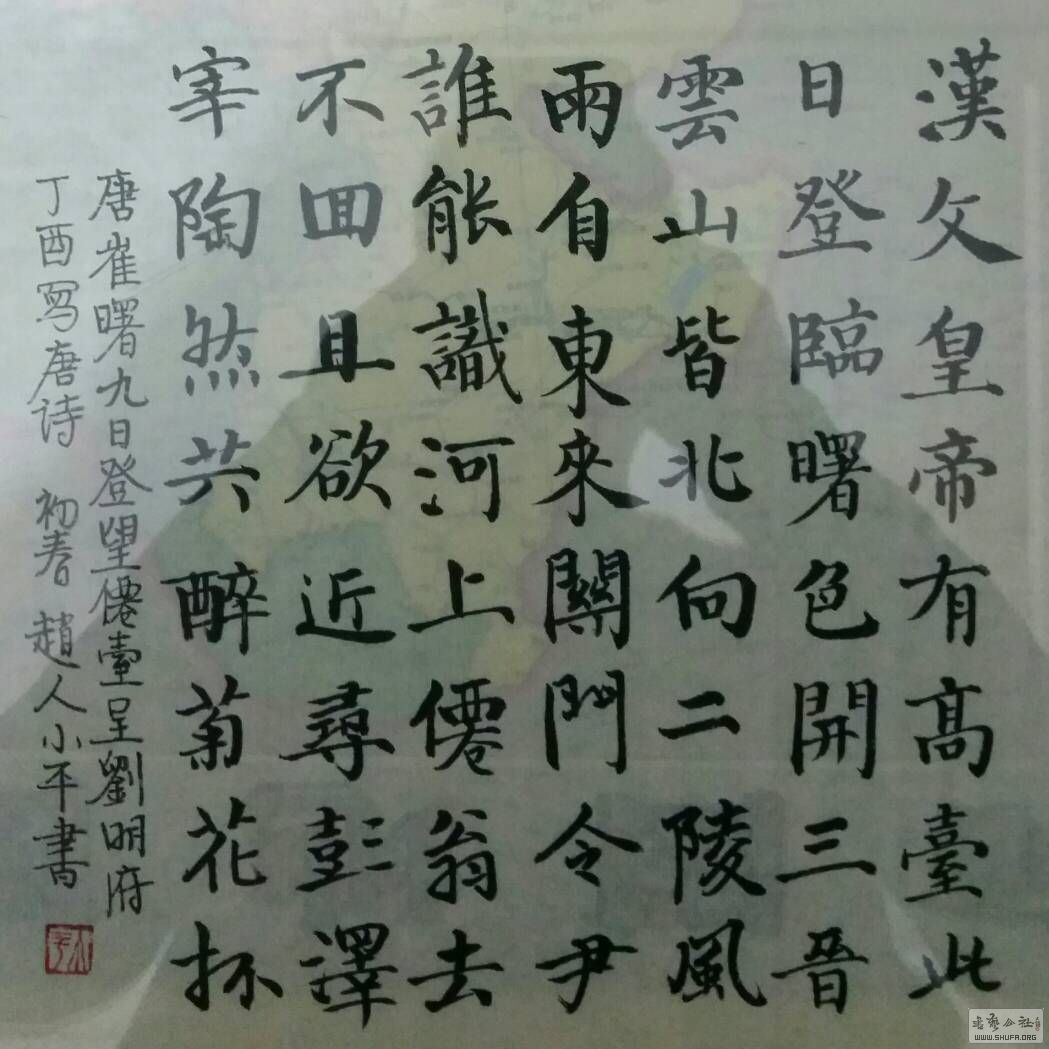 漢文皇帝有髙臺此
日登臨曙色開三晉
雲山皆北向二陵風
雨自東來關門令尹
誰能識河上僊翁去
不回且欲近尋彭澤
宰陶然共醉菊花杯
唐崔曙九日登望僊臺呈劉明府
丁酉写唐诗 初春 趙人小平書
小平
書藝公社
WWW.SHUFA.ORG